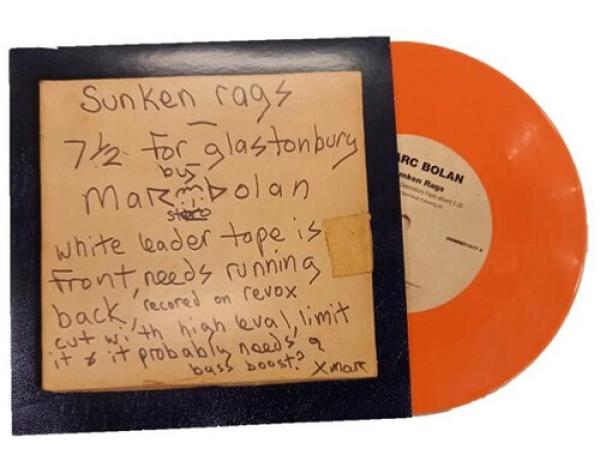 Sunken rags
7½ for glastonbury
by
Marc Bolan
white leader tape is
front, needs running
back, recored on revox
cut with high leval, limit
it & it probably needs a
bass boost? X marc
ARC BOLAN
unken Rags